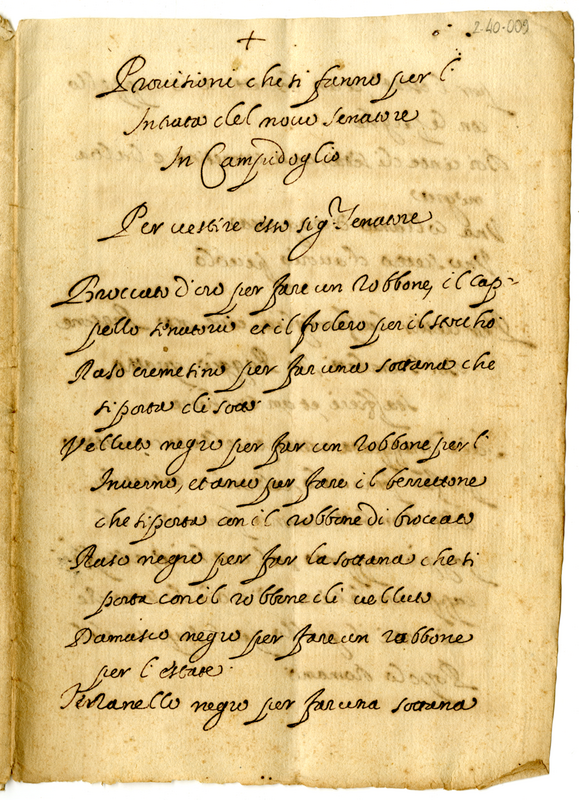 2-40-009
+
Provisioni che si fanno per l'
Intrata del novo Senatore
In Campidoglio
Per vestire esso sig.r Senatore
Broccato d'oro per fare un robbone, il cap=
pello senatorio et il fodero per il stocho
Raso cremesino per far una sottana che
si porta di sotto
Velluto negro per far un robbone per l'
Inverno, et anco per fare il berrettone
che si porta con il robbone di broccato
Raso negro per far la sottana che si
porta con il robbone di velluto
Damasco negro per fare un robbone
per l'estate
Terzanello negro per far una sottana